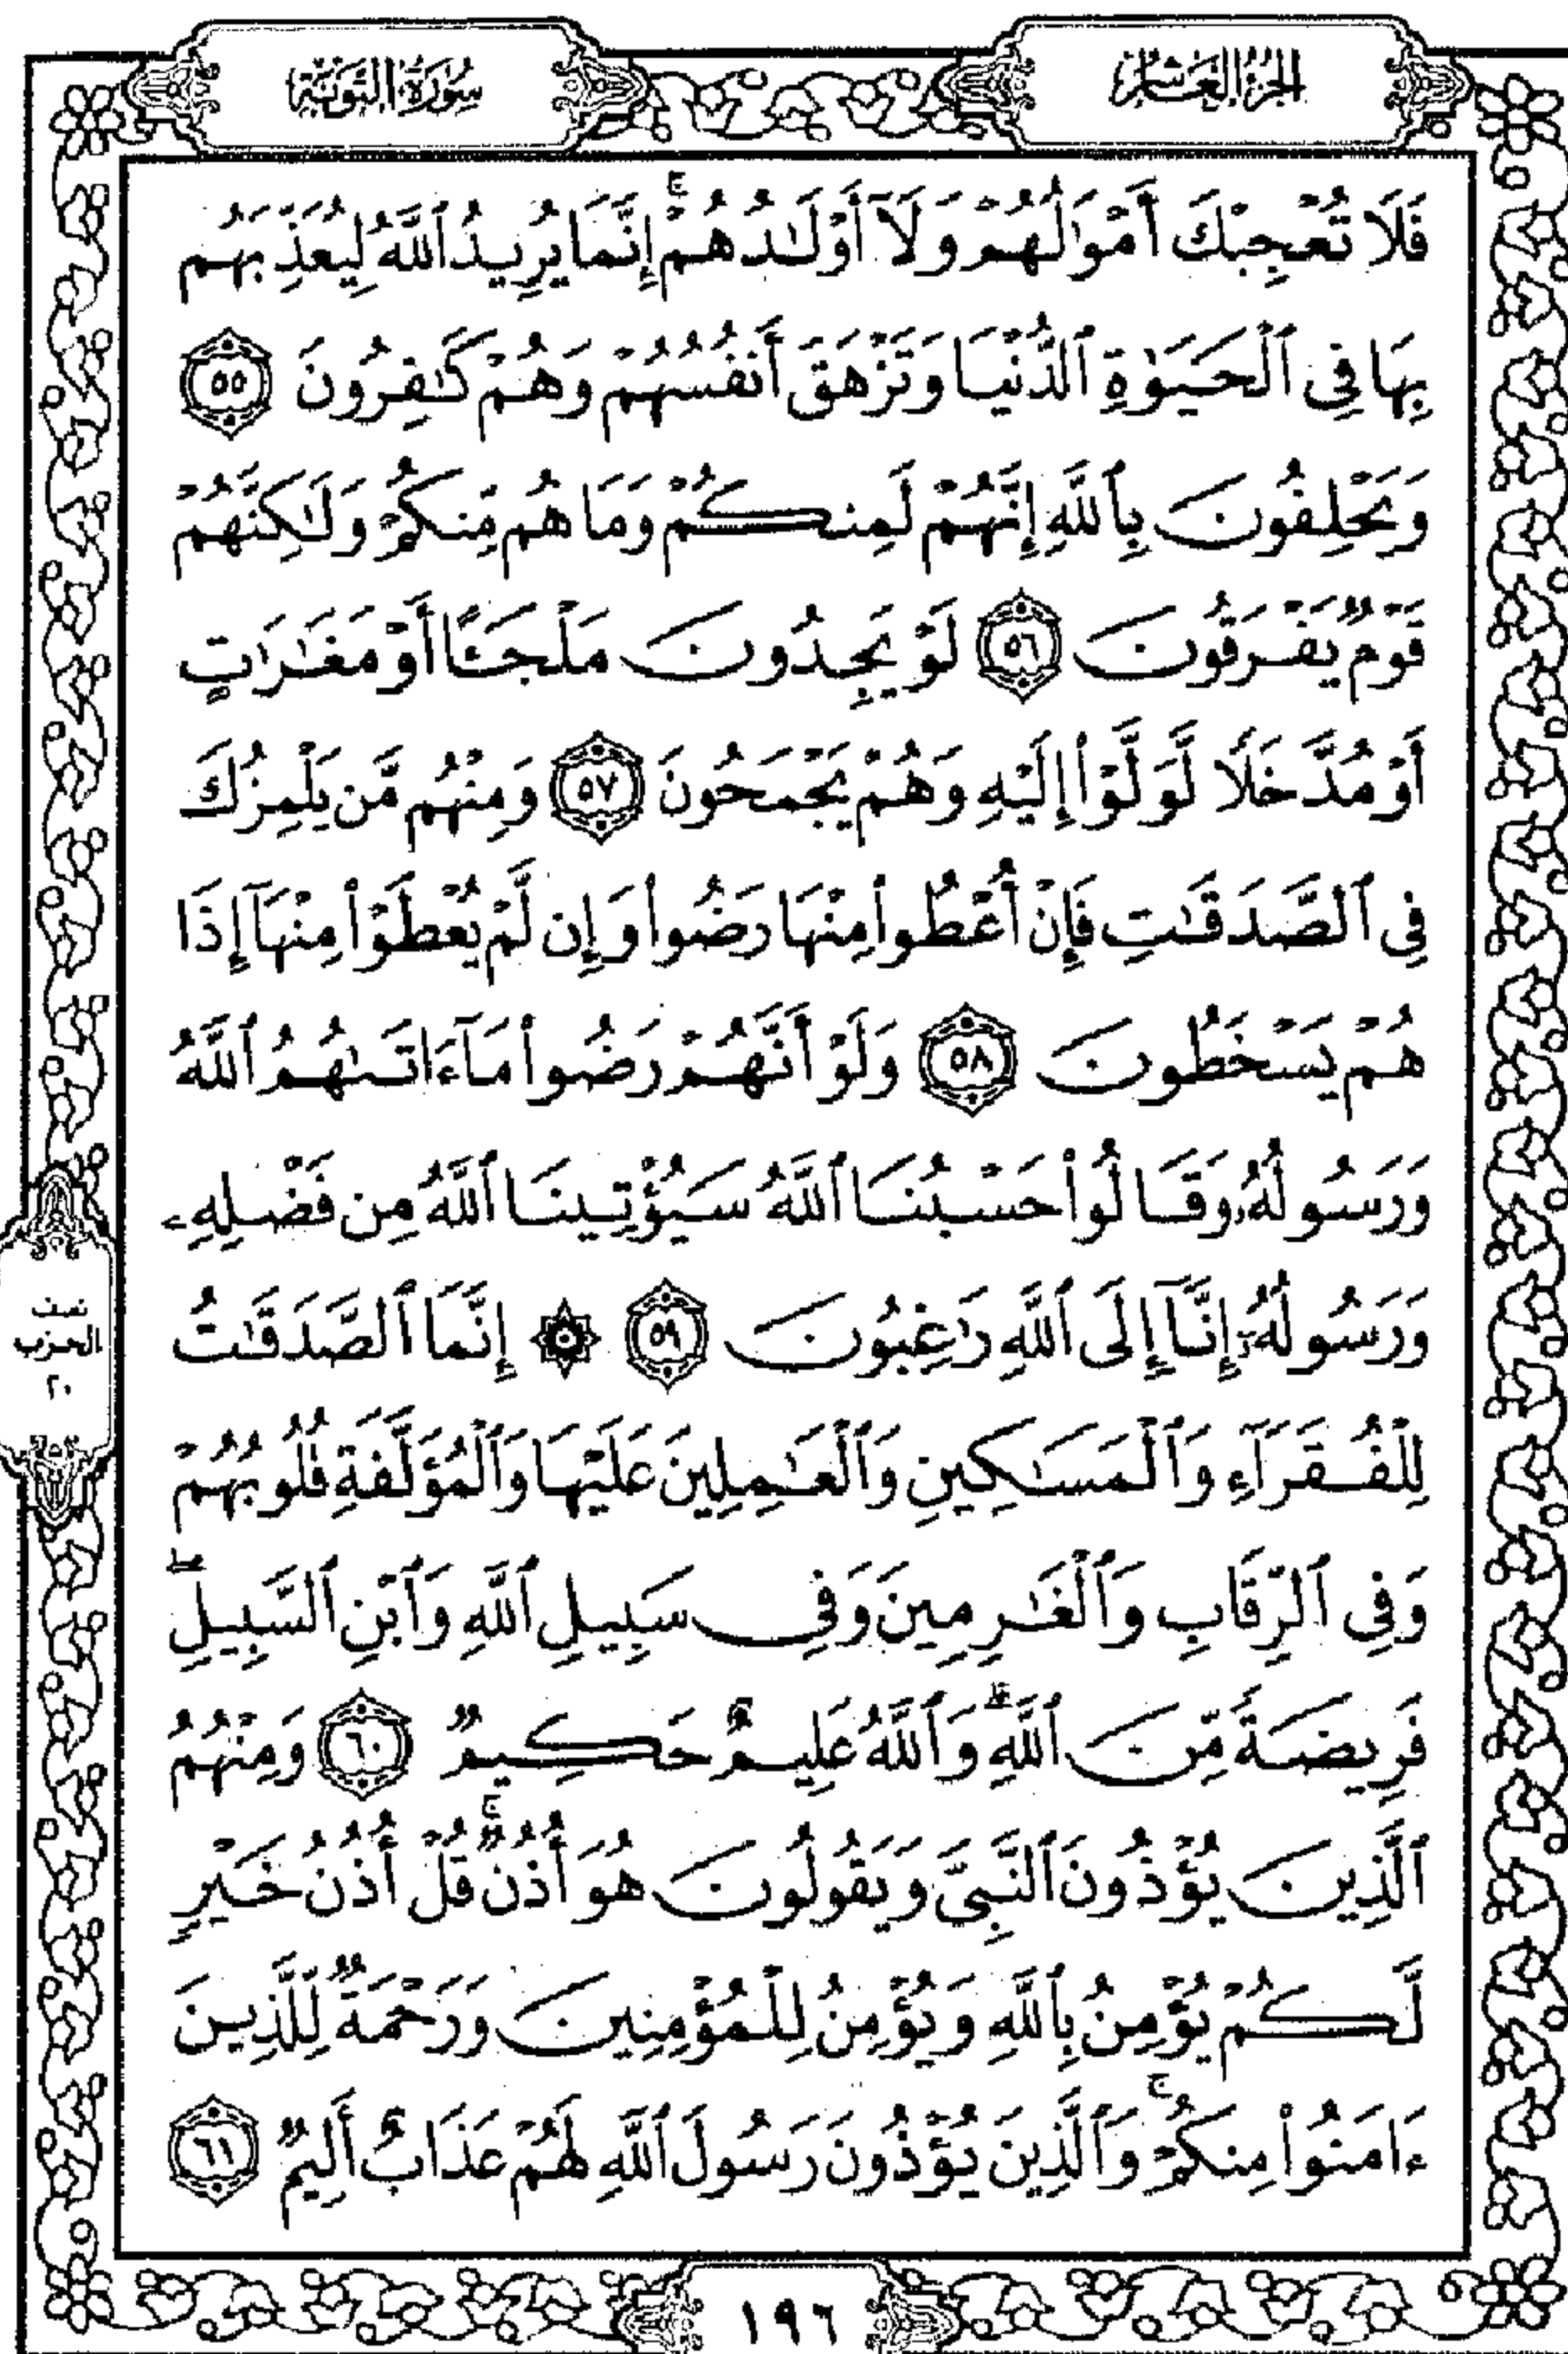 الجزء العاشر
سورة التوبة
فَلَا تُعْجِبْكَ أَمْوَٰلُهُمْ وَلَآ أَوْلَـٰدُهُمْ ۚ إِنَّمَا يُرِيدُ ٱللَّهُ لِيُعَذِّبَهُم
بِهَا فِى ٱلْحَيَوٰةِ ٱلدُّنْيَا وَتَزْهَقَ أَنفُسُهُمْ وَهُمْ كَـٰفِرُونَ ٥٥
وَيَحْلِفُونَ بِٱللَّهِ إِنَّهُمْ لَمِنكُمْ وَمَا هُم مِّنكُمْ وَلَـٰكِنَّهُمْ
قَوْمٌ يَفْرَقُونَ ٥٦ لَوْ يَجِدُونَ مَلْجَـًٔا أَوْ مَغَـٰرَٰتٍ
أَوْ مُدَّخَلًا لَّوَلَّوْا۟ إِلَيْهِ وَهُمْ يَجْمَحُونَ ٥٧ وَمِنْهُم مَّن يَلْمِزُكَ
فِى ٱلصَّدَقَـٰتِ فَإِنْ أُعْطُوا۟ مِنْهَا رَضُوا۟ وَإِن لَّمْ يُعْطَوْا۟ مِنْهَآ إِذَا
هُمْ يَسْخَطُونَ ٥٨ وَلَوْ أَنَّهُمْ رَضُوا۟ مَآ ءَاتَىٰهُمُ ٱللَّهُ
وَرَسُولُهُۥ وَقَالُوا۟ حَسْبُنَا ٱللَّهُ سَيُؤْتِينَا ٱللَّهُ مِن فَضْلِهِۦ
وَرَسُولُهُۥٓ إِنَّآ إِلَى ٱللَّهِ رَٰغِبُونَ ٥٩ ۞ إِنَّمَا ٱلصَّدَقَـٰتُ
لِلْفُقَرَآءِ وَٱلْمَسَـٰكِينِ وَٱلْعَـٰمِلِينَ عَلَيْهَا وَٱلْمُؤَلَّفَةِ قُلُوبُهُمْ
وَفِى ٱلرِّقَابِ وَٱلْغَـٰرِمِينَ وَفِى سَبِيلِ ٱللَّهِ وَٱبْنِ ٱلسَّبِيلِ ۖ
فَرِيضَةً مِّنَ ٱللَّهِ ۗ وَٱللَّهُ عَلِيمٌ حَكِيمٌ ٦٠ وَمِنْهُمُ
ٱلَّذِينَ يُؤْذُونَ ٱلنَّبِىَّ وَيَقُولُونَ هُوَ أُذُنٌ ۚ قُلْ أُذُنُ خَيْرٍ
لَّكُمْ يُؤْمِنُ بِٱللَّهِ وَيُؤْمِنُ لِلْمُؤْمِنِينَ وَرَحْمَةٌ لِّلَّذِينَ
ءَامَنُوا۟ مِنكُمْ ۚ وَٱلَّذِينَ يُؤْذُونَ رَسُولَ ٱللَّهِ لَهُمْ عَذَابٌ أَلِيمٌ ٦١
نصف
الحزب
٢٠
١٩٦